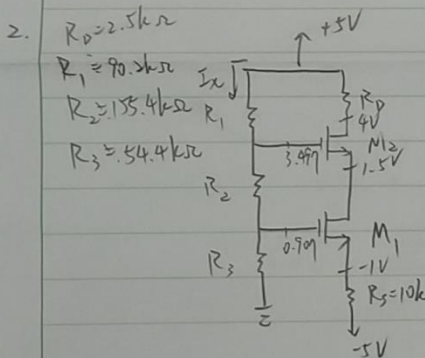 2.
R_D=2.5kΩ
R_1≈90.2kΩ
R_2≈155.4kΩ
R_3≈54.4kΩ
+5V
I_x
R_1
R_D
4V
M_2
3.499
1.5V
R_2
0.909
M_1
R_3
-1V
R_S=10k
-5V